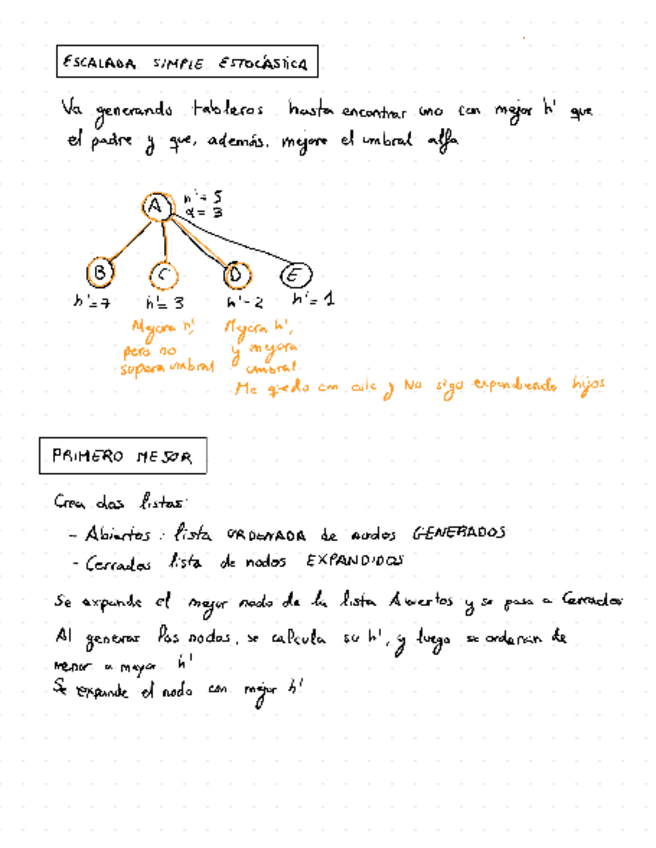 ESCALADA SIMPLE ESTOCÁSTICA
Va generando tableros hasta encontrar uno con mejor h' que
el padre y que, además, mejore el umbral alfa
A h' = 5
α = 3
B C D E
h' = 7 h' = 3 h' = 2 h' = 1
Mejora h', Mejora h',
pero no y mejora
supera umbral umbral
Me quedo con este y No sigo expandiendo hijos
PRIMERO MEJOR
Crea dos listas:
- Abiertos: lista ORDENADA de nodos GENERADOS
- Cerrados lista de nodos EXPANDIDOS
Se expande el mejor nodo de la lista Abiertos y se pasa a Cerrados
Al generar los nodos, se calcula su h', y luego se ordenan de
menor a mayor h'
Se expande el nodo con mejor h'